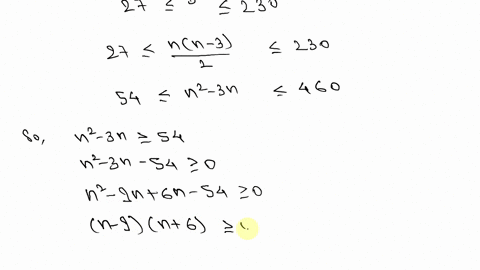 27 ≤ ≤ 230
27 ≤ n(n-3)/2 ≤ 230
54 ≤ n²-3n ≤ 460
So, n²-3n ≥ 54
n²-3n-54 ≥ 0
n²-9n+6n-54 ≥ 0
(n-9)(n+6) ≥